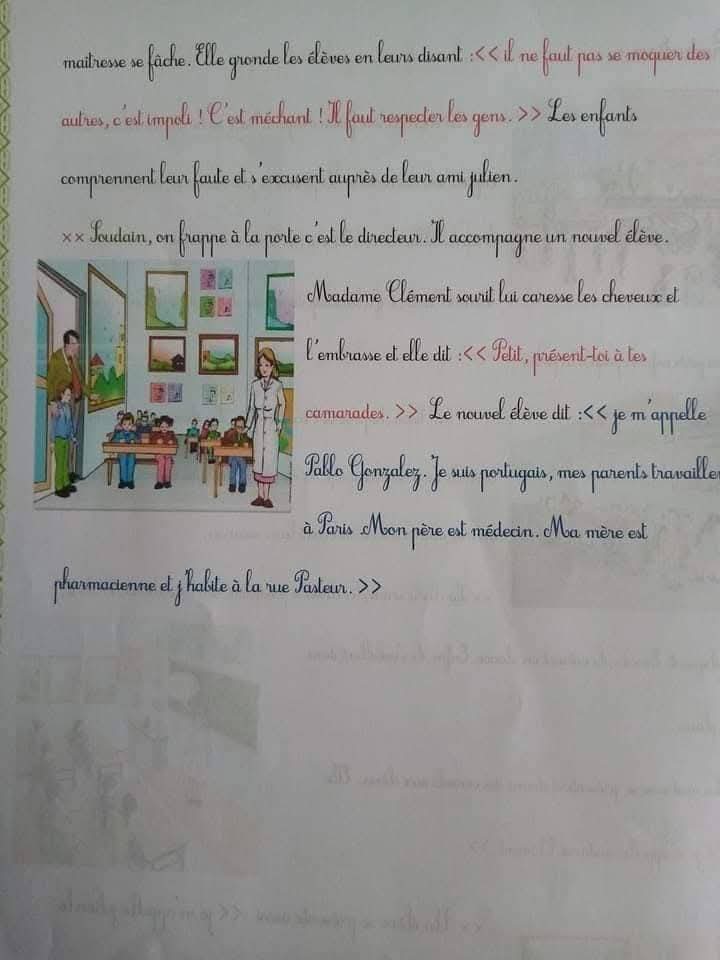 maitresse se fâche. Elle gronde les élèves en leurs disant :<< il ne faut pas se moquer des
autres, c'est impoli ! C'est méchant ! Il faut respecter les gens. >> Les enfants
comprennent leur faute et s'excusent auprès de leur ami julien.
×× Soudain, on frappe à la porte c'est le directeur. Il accompagne un nouvel élève.
Madame Clément sourit lui caresse les cheveux et
l'embrasse et elle dit :<< Petit, présent-toi à tes
camarades. >> Le nouvel élève dit :<< je m'appelle
Pablo Gonzalez. Je suis portugais, mes parents travaille
à Paris .Mon père est médecin. Ma mère est
pharmacienne et j'habite à la rue Pasteur. >>